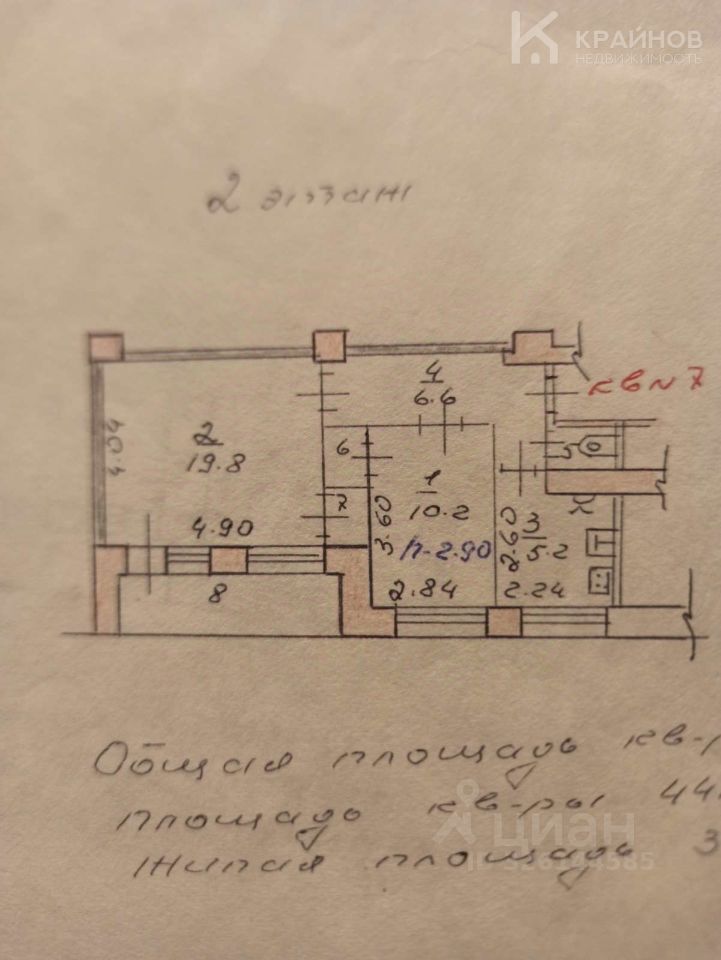 КРАЙНОВ
НЕДВИЖИМОСТЬ
2 этаж
4
6.6
кв N 7
4.04
2
19.8
4.90
6
7
3.60
1
10.2
h-2.90
2.84
2.60
3
5.2
2.24
5
8
Общая площадь кв-р
площадь кв-ры 44
Жилая площадь 3
циан